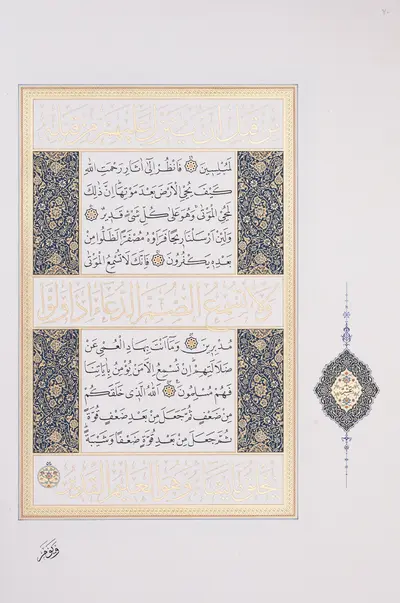 من قبل أن ينزل عليهم من قبله
لَمُبْلِسِينَ فَانْظُرْ إِلَىٰ آثَارِ رَحْمَتِ اللَّهِ
كَيْفَ يُحْيِي الْأَرْضَ بَعْدَ مَوْتِهَا إِنَّ ذَٰلِكَ
لَمُحْيِي الْمَوْتَىٰ وَهُوَ عَلَىٰ كُلِّ شَيْءٍ قَدِيرٌ
وَلَئِنْ أَرْسَلْنَا رِيحًا فَرَأَوْهُ مُصْفَرًّا لَظَلُّوا مِنْ
بَعْدِهِ يَكْفُرُونَ فَإِنَّكَ لَا تُسْمِعُ الْمَوْتَىٰ
وَلَا تُسْمِعُ الصُّمَّ الدُّعَاءَ إِذَا وَلَّوْا
مُدْبِرِينَ وَمَا أَنْتَ بِهَادِ الْعُمْيِ عَنْ
ضَلَالَتِهِمْ إِنْ تُسْمِعُ إِلَّا مَنْ يُؤْمِنُ بِآيَاتِنَا
فَهُمْ مُسْلِمُونَ اللَّهُ الَّذِي خَلَقَكُمْ
مِنْ ضَعْفٍ ثُمَّ جَعَلَ مِنْ بَعْدِ ضَعْفٍ قُوَّةً
ثُمَّ جَعَلَ مِنْ بَعْدِ قُوَّةٍ ضَعْفًا وَشَيْبَةً
يخلق ما يشاء وهو العليم القدير
ويوم